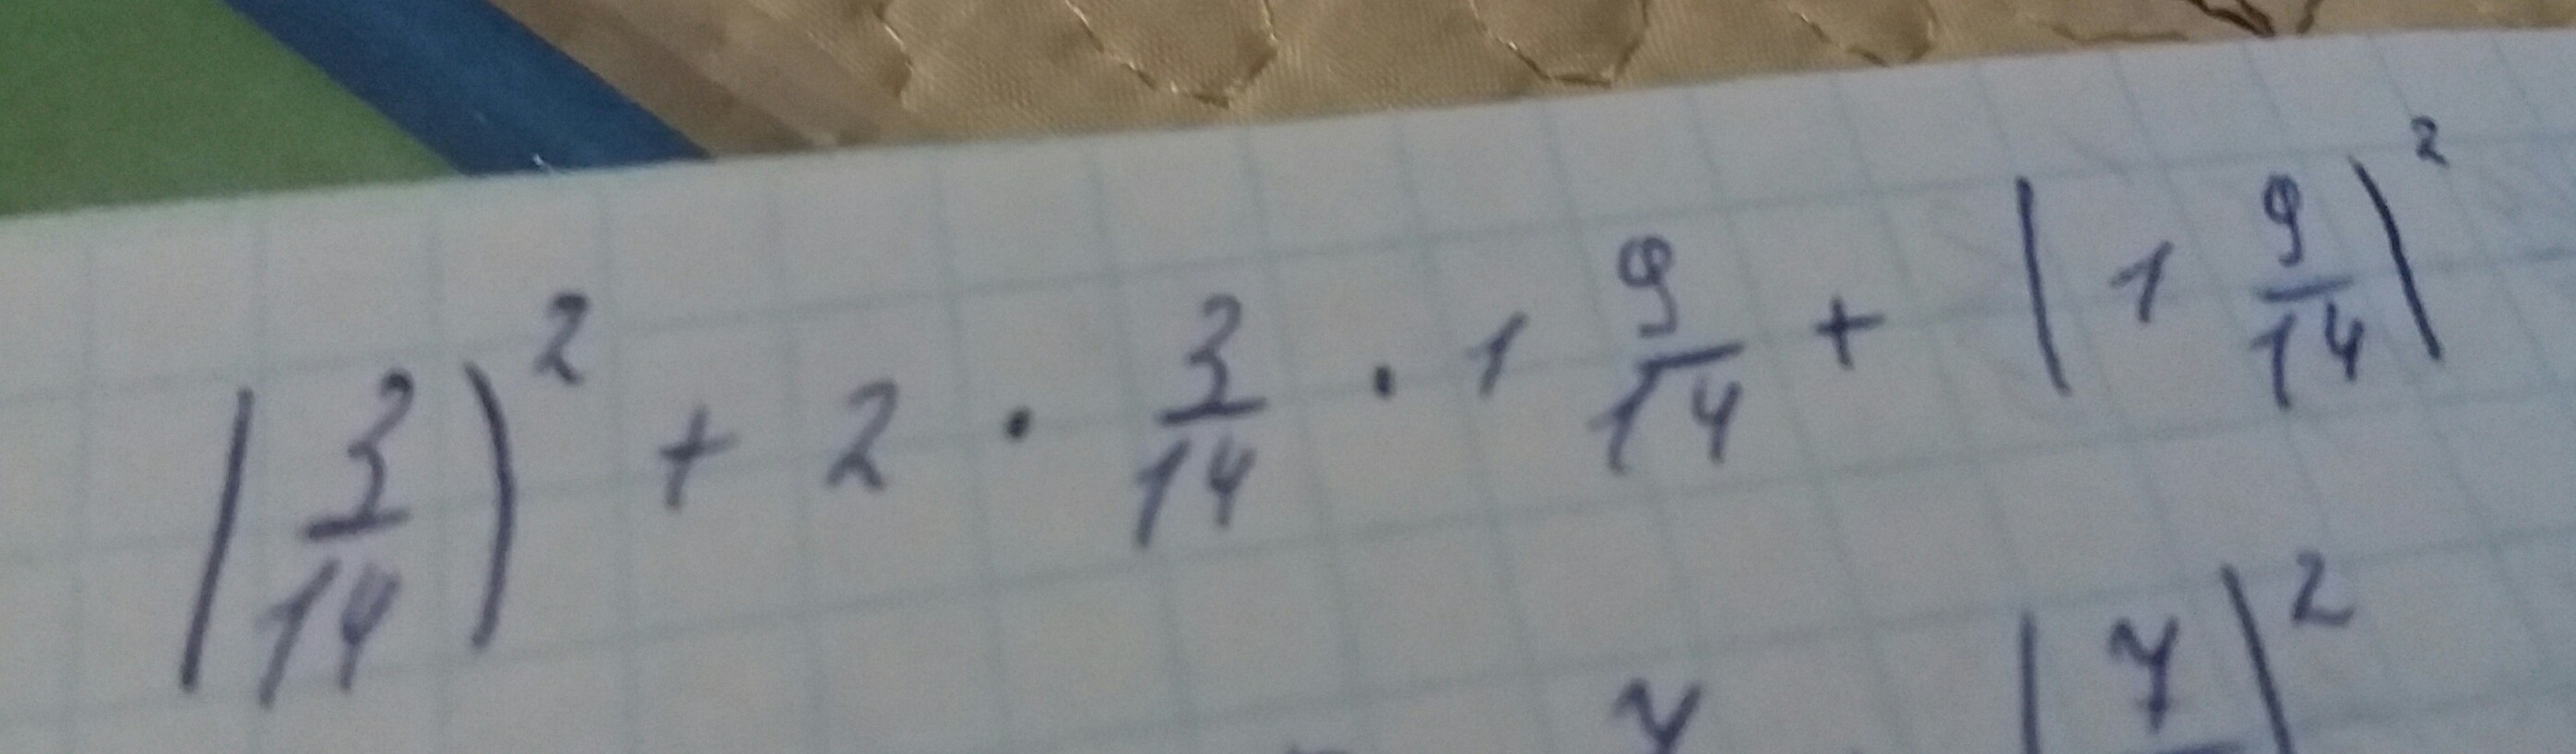 (3/14)² + 2 · 3/14 · 1 9/14 + (1 9/14)²